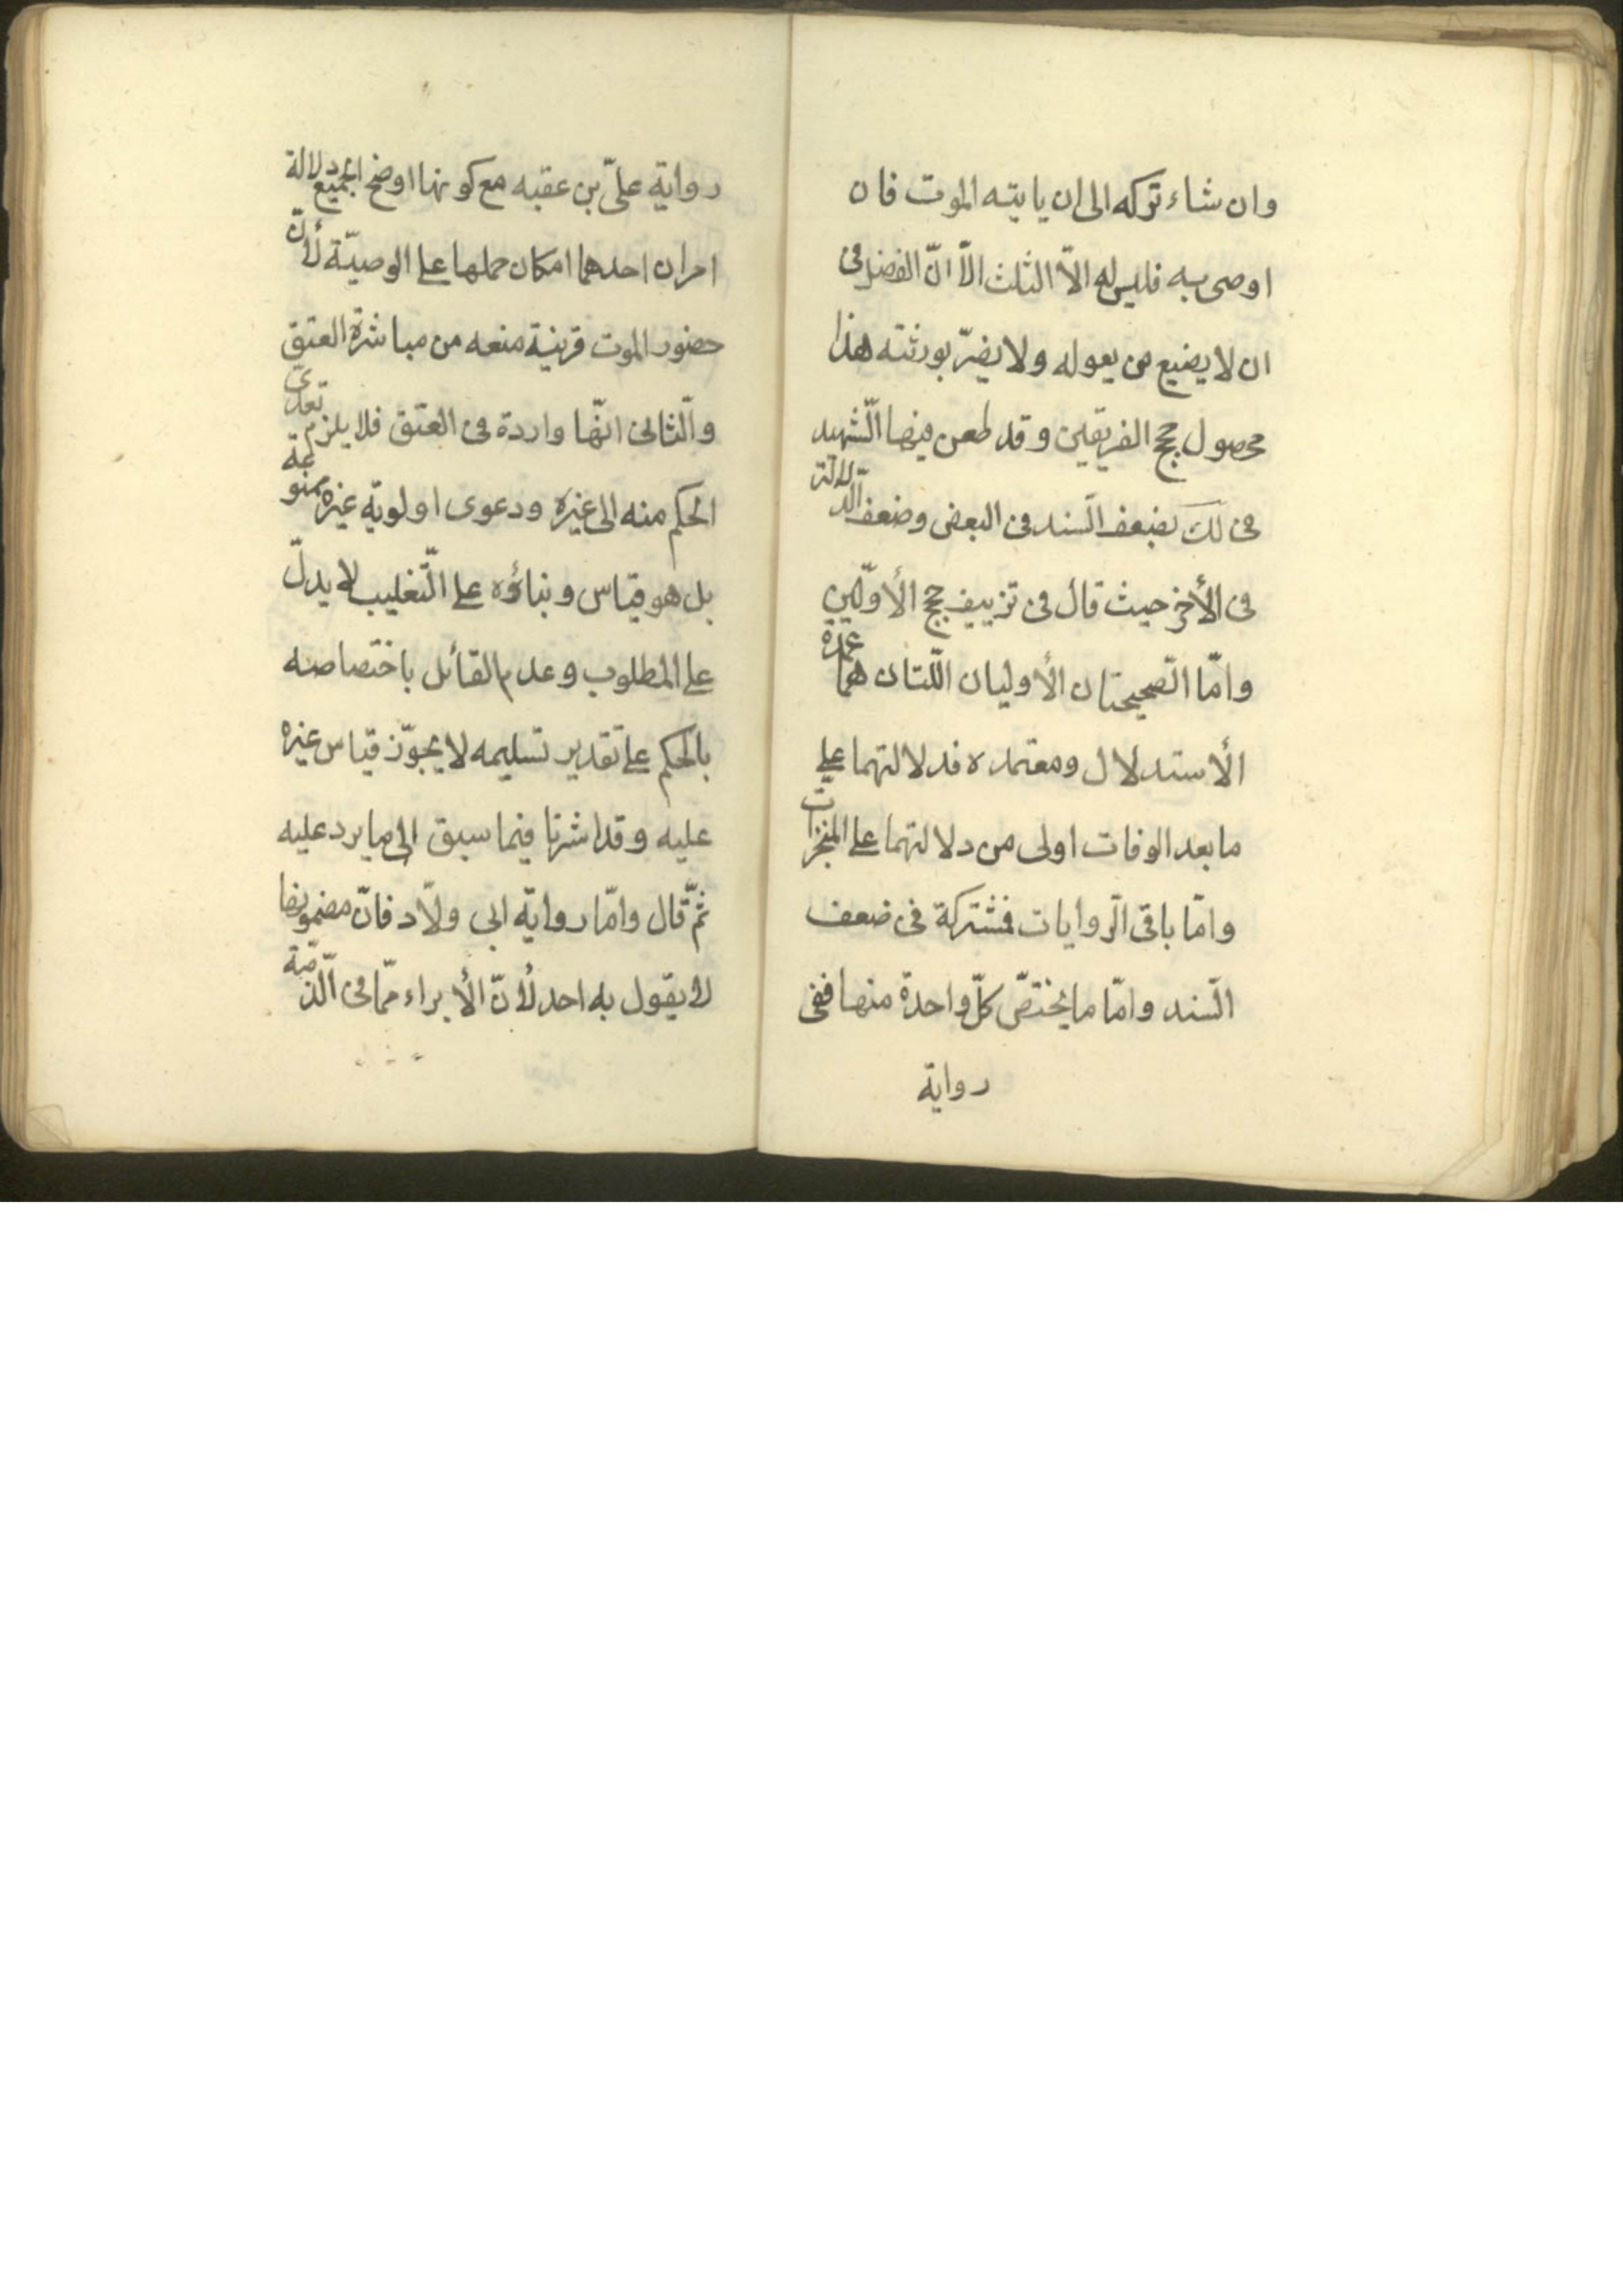 وان شاء تركه الى ان ياتيه الموت فان
اوصى به فليس له الّا الثلث الّا انّ الفضل فى
ان لا يضيع من يعوله ولا يضرّ بورثته هذا
محصول حجج الفريقين و قد طعن فيها الشّهيد
فى لك بضعف السّند فى البعض وضعف الدّلالة
فى الأخر حيث قال فى تزييف حجج الأوّلين
وامّا الصّحيحتان الأوليان اللّتان هما عمدة
الأستدلال ومعتمده فدلالتهما على
ما بعد الوفات اولى من دلالتهما على المنجزات
وامّا باقى الرّوايات فمشتركة فى ضعف
السّند وامّا ما يختصّ كلّ واحدة منها ففى
رواية
رواية علىّ بن عقبه مع كونها اوضح الجميع دلالة
امران احدهما امكان حملها على الوصيّة لأنّ
حضور الموت قرينة منعه من مباشرة العتق
والثّانى انّها واردة فى العتق فلا يلزم تعدى
الحكم منه الى غيره ودعوى اولويّة غيره ممنوعة
بل هو قياس وبناؤه على التّغليب لا يدلّ
على المطلوب وعدم القائل باختصاصه
بالحكم على تقدير تسليمه لا يجوّز قياس غيره
عليه وقد اشرنا فيما سبق الى ما يرد عليه
ثمّ قال وامّا رواية ابى ولّاد فانّ مضمونها
لا يقول به احد لأنّ الأبراء ممّا فى الذّمّة